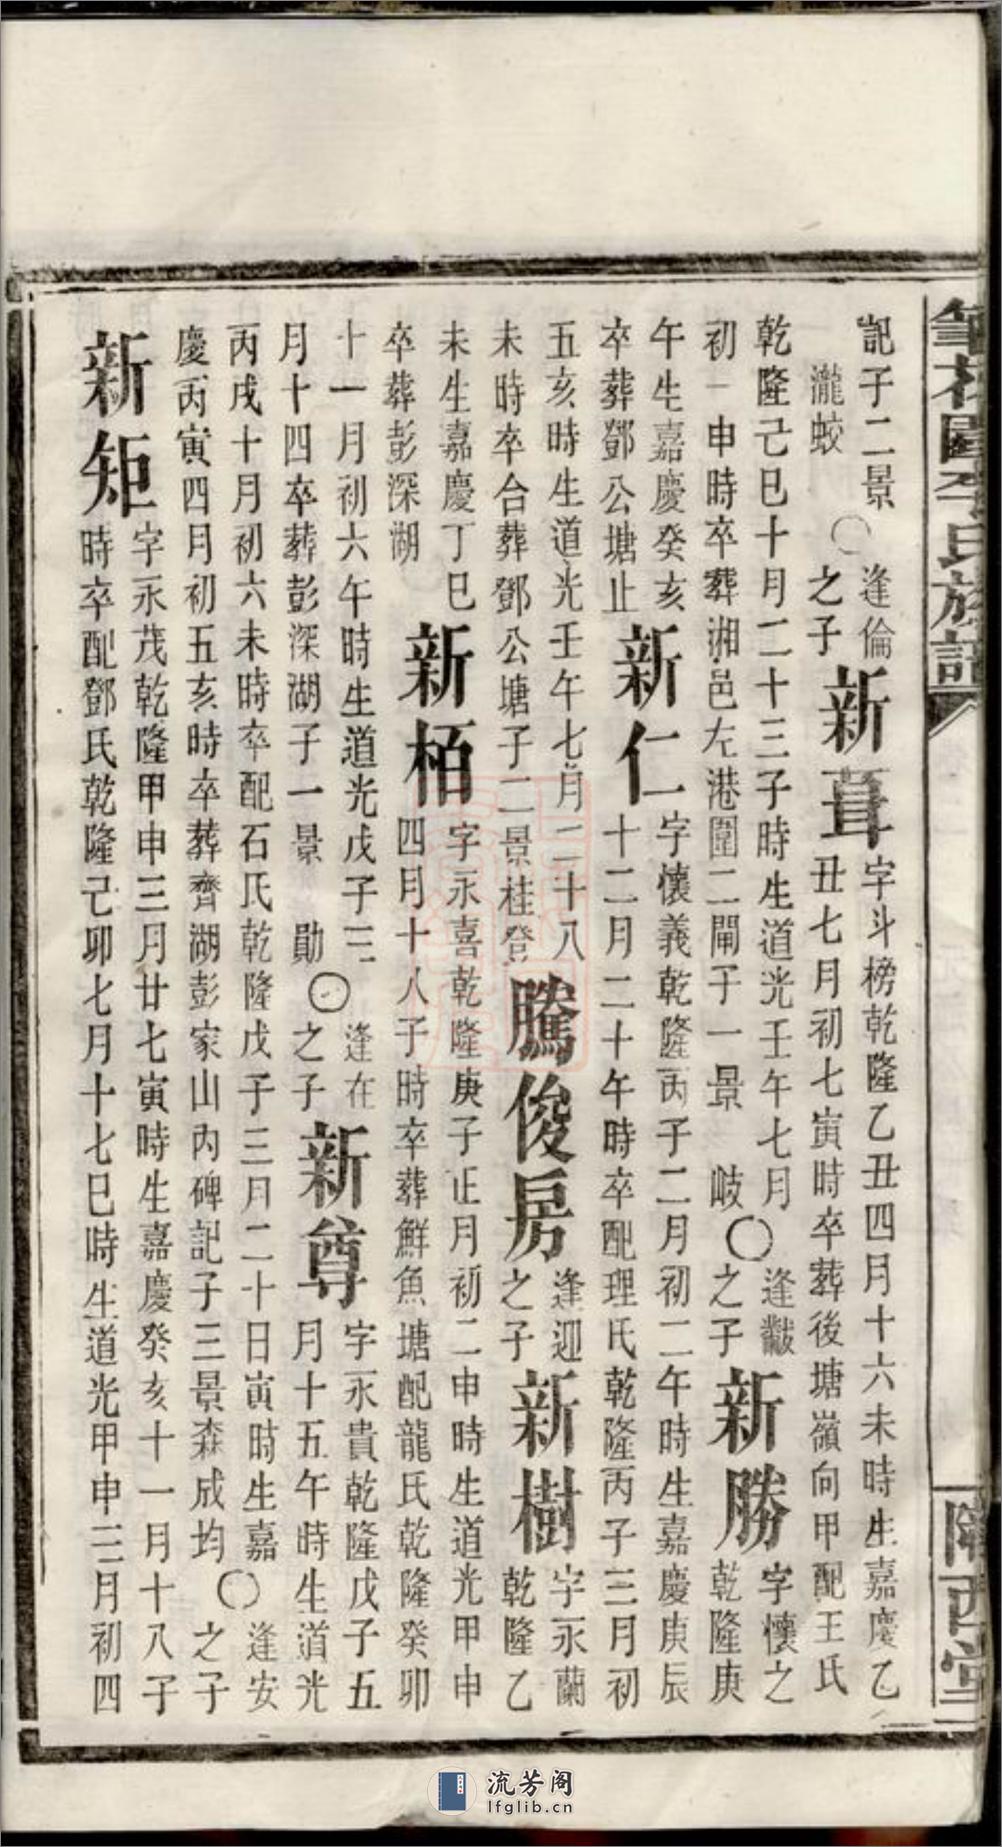 李氏族譜
隴西堂
記子二景
瀧蛟
〇
逢倫
之子
新葺
字斗榜乾隆乙丑四月十六未時生嘉慶乙
丑七月初七寅時卒葬後塘嶺向甲配王氏
乾隆己巳十月二十三子時生道光壬午七月
初一申時卒葬湘邑左港圍二閘子一景岐
〇
逢黻
之子
新勝
字懷之
乾隆庚
午生嘉慶癸亥
卒葬鄧公塘止
新仁
字懷義乾隆丙子二月初二午時生嘉慶庚辰
十二月二十午時卒配理氏乾隆丙子三月初
五亥時生道光壬午七月二十八
未時卒合葬鄧公塘子二景桂登
騰俊房
逢迎
之子
新樹
字永蘭
乾隆乙
未生嘉慶丁巳
卒葬彭深湖
新栢
字永喜乾隆庚子正月初二申時生道光甲申
四月十八子時卒葬鮮魚塘配龍氏乾隆癸卯
十一月初六午時生道光戊子三
月十四卒葬彭深湖子一景勛
〇
逢在
之子
新尊
字永貴乾隆戊子五
月十五午時生道光
丙戌十月初六未時卒配石氏乾隆戊子三月二十日寅時生嘉
慶丙寅四月初五亥時卒葬齊湖彭家山內碑記子三景森成均
〇
逢安
之子
新矩
字永茂乾隆甲申三月廿七寅時生嘉慶癸亥十一月十八子
時卒配鄧氏乾隆己卯七月十七巳時生道光甲申三月初四
流芳阁
lfglib.cn